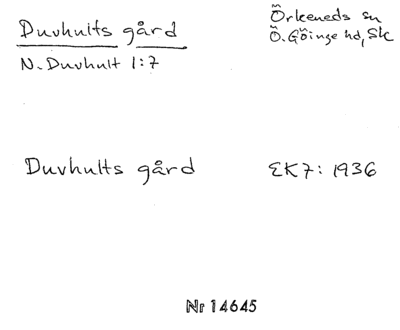 Duvhults gård
Örkeneds sn
Ö. Göinge hd, Sk
N. Duvhult 1:7
Duvhults gård
EK7: 1936
Nr 14645